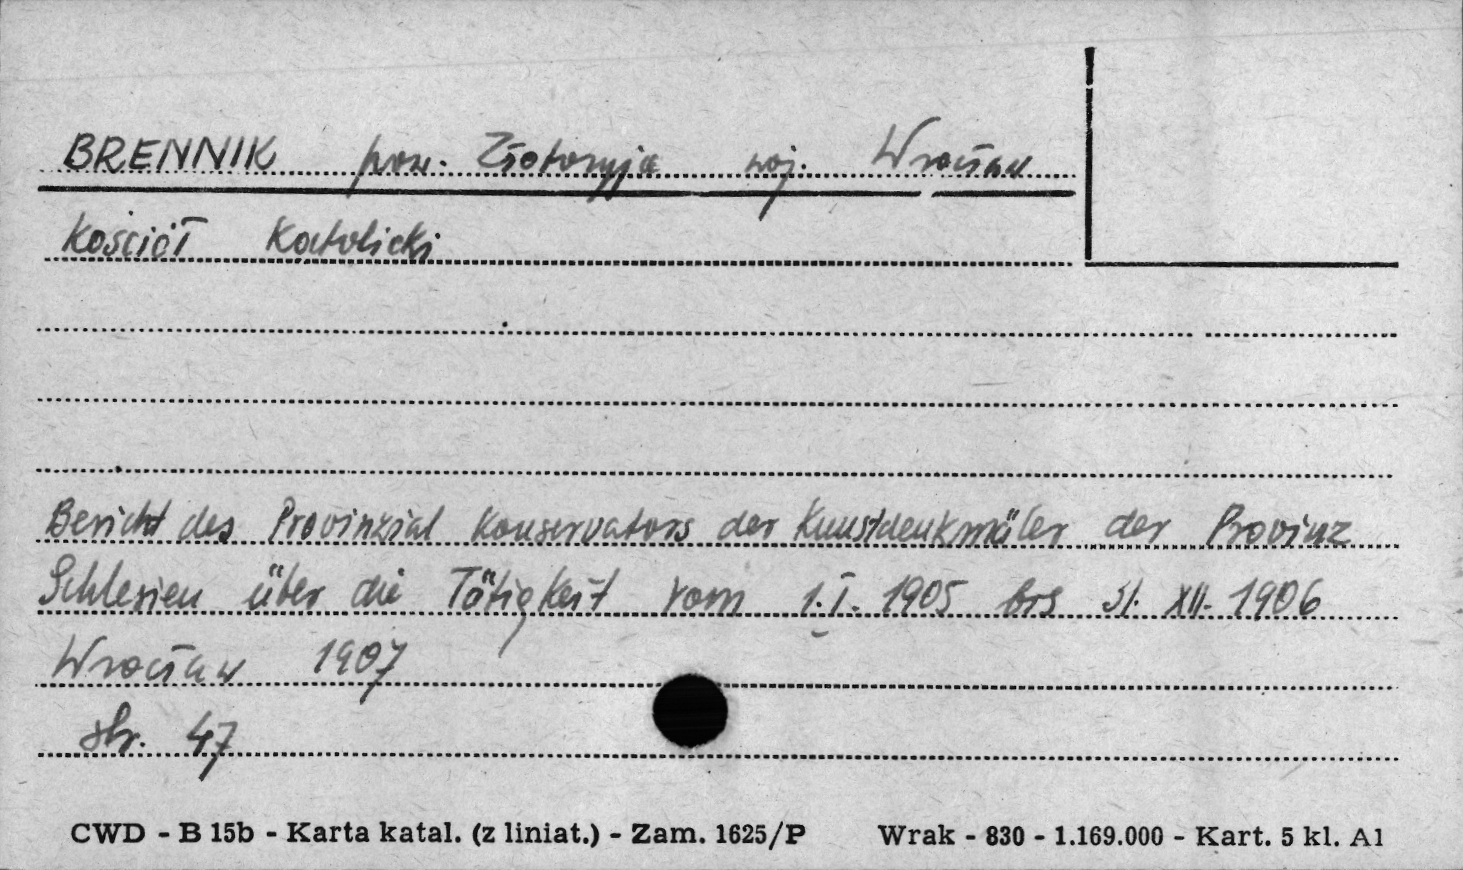 BRENNIK pow. Złotoryja woj. Wrocław
Kościół Katolicki
Bericht des Provinzial Konservators der Kunstdenkmäler der Provinz
Schlesien über die Tätigkeit vom 1.I. 1905 bis 31. XII. 1906
Wrocław 1907
str. 47
CWD - B 15b - Karta katal. (z liniat.) - Zam. 1625/P Wrak - 830 - 1.169.000 - Kart. 5 kl. A1